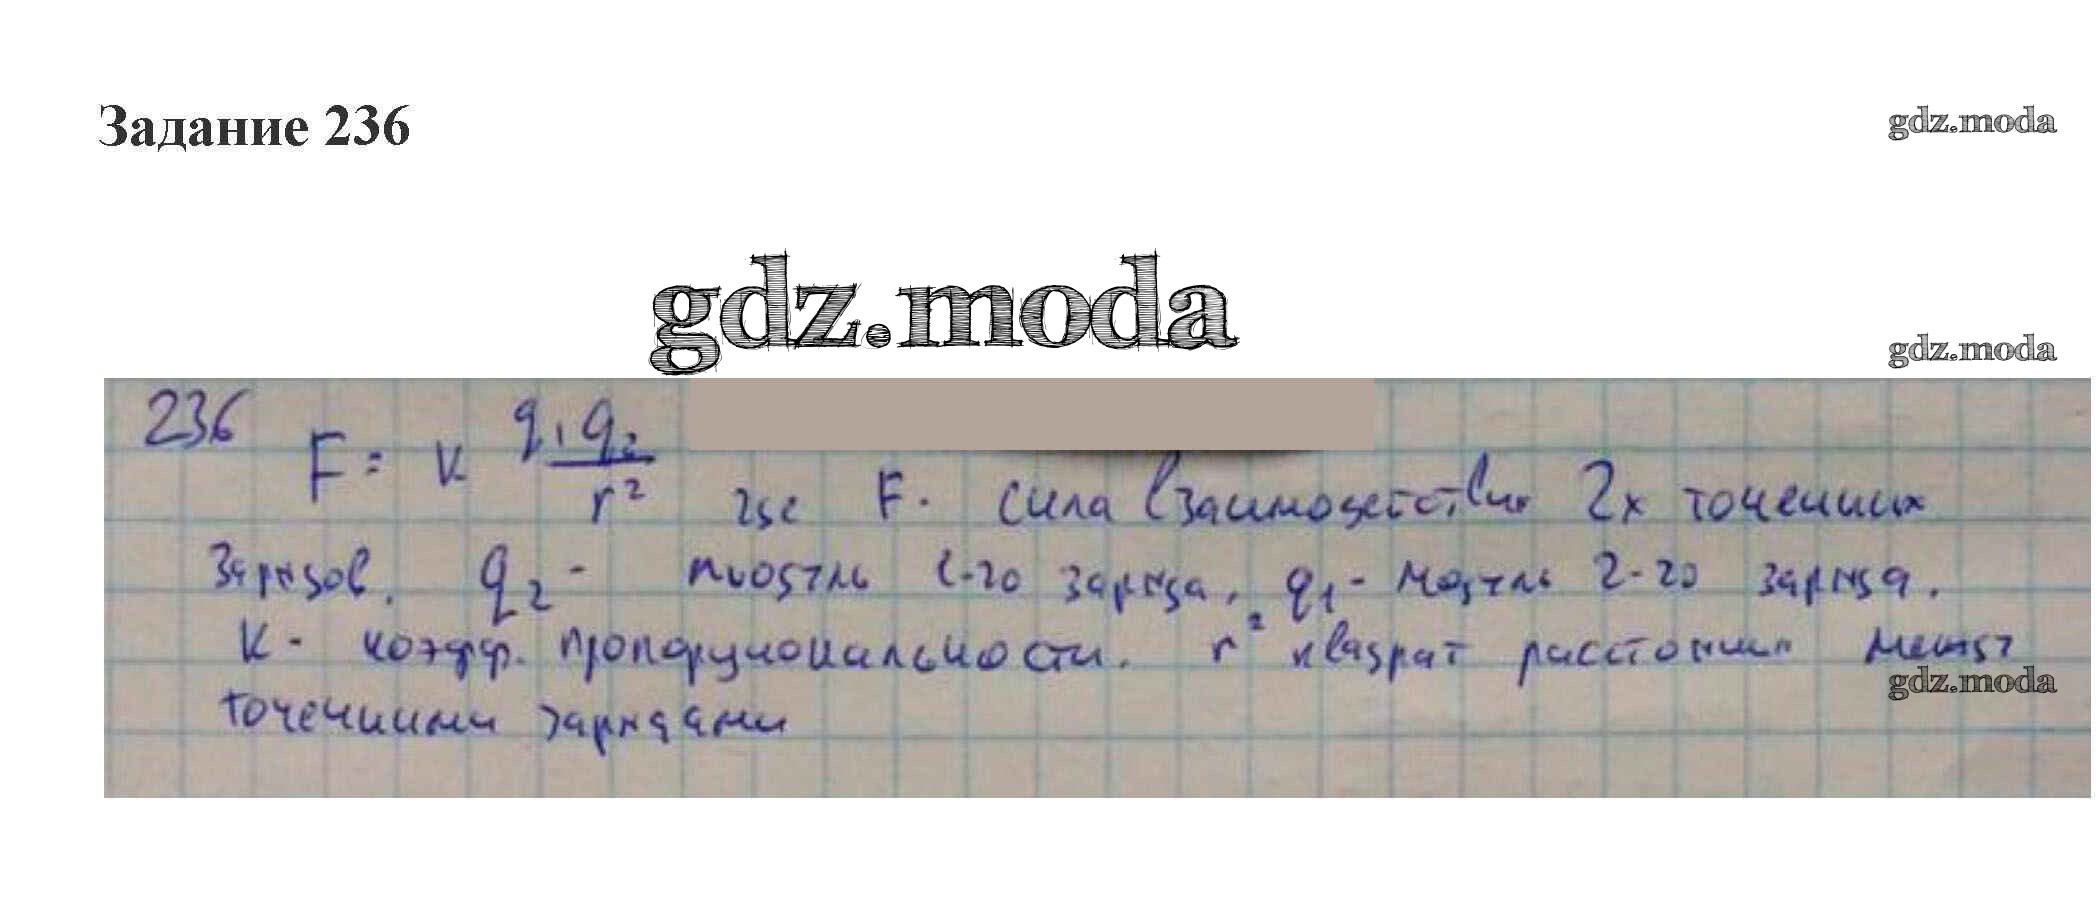 Задание 236
gdz.moda
gdz.moda
gdz.moda
236
F = k q₁q₂ / r²
где F - сила взаимодействия 2х точечных
зарядов. q₂ - модуль 1-го заряда, q₁ - модуль 2-го заряда.
k - коэфф. пропорциональности. r² квадрат расстояния между
gdz.moda
точечными зарядами